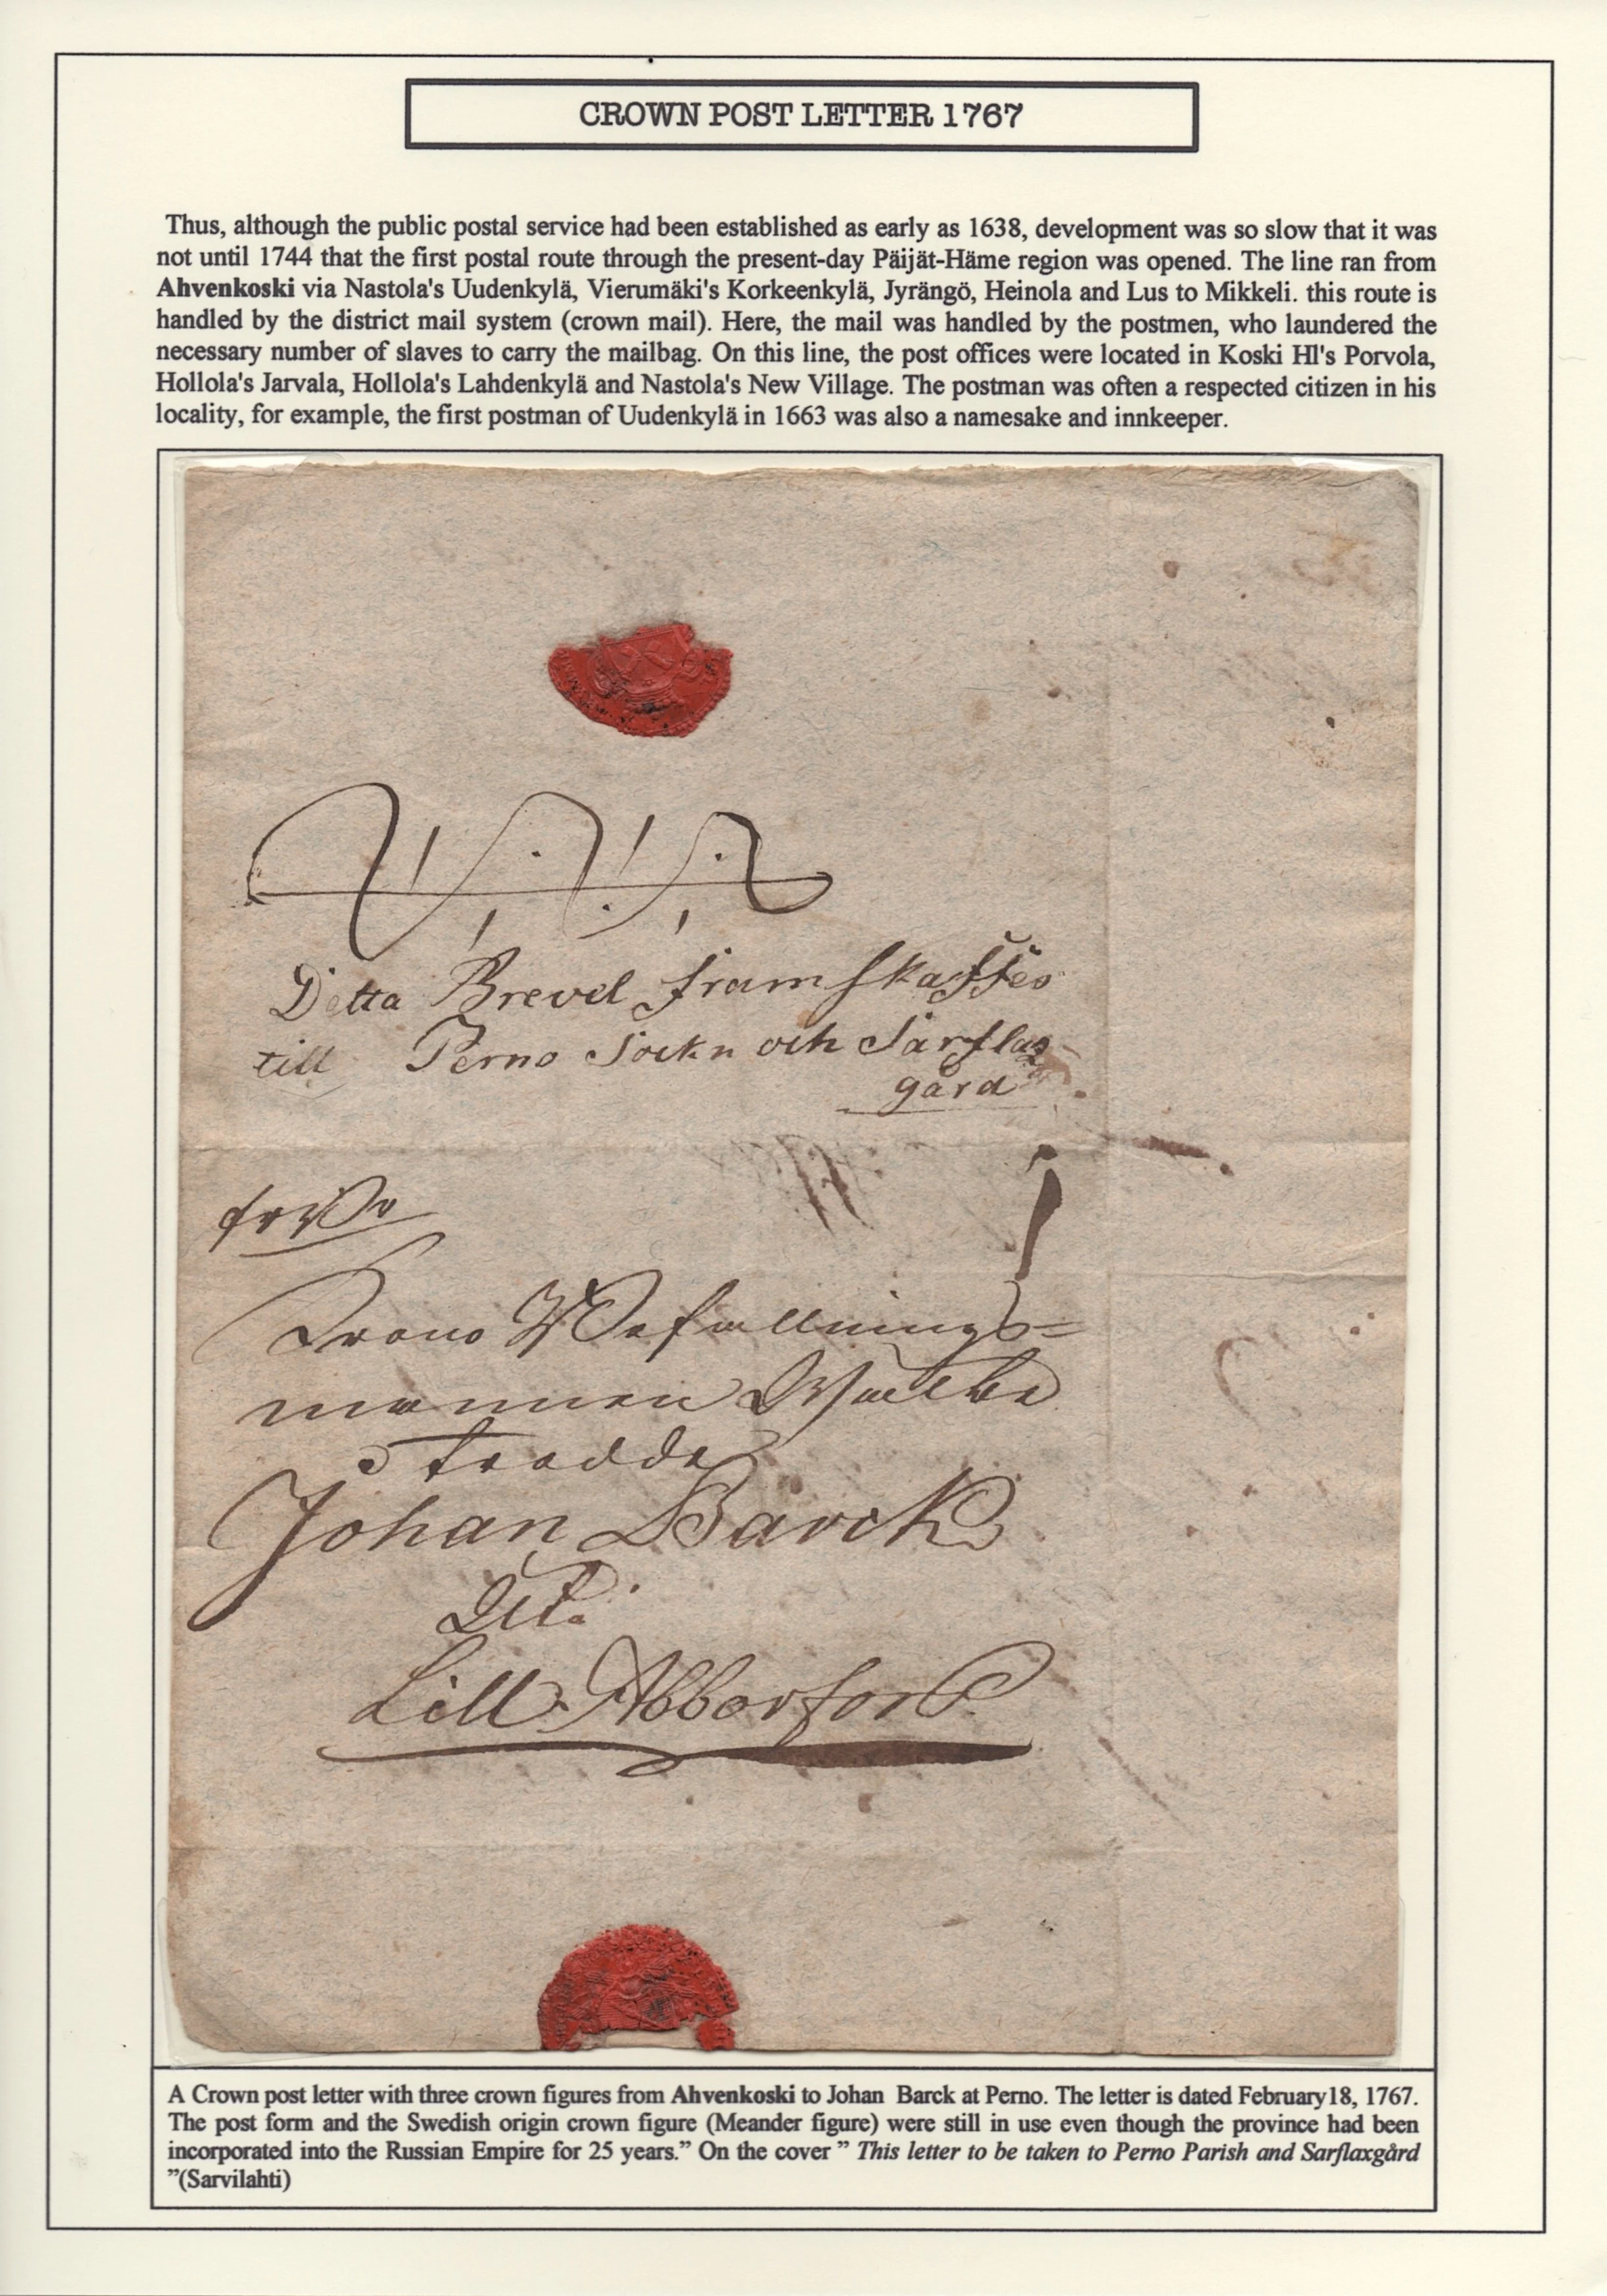 CROWN POST LETTER 1767
Thus, although the public postal service had been established as early as 1638, development was so slow that it was
not until 1744 that the first postal route through the present-day Päijät-Häme region was opened. The line ran from
Ahvenkoski via Nastola's Uudenkylä, Vierumäki's Korkeenkylä, Jyrängö, Heinola and Lus to Mikkeli. this route is
handled by the district mail system (crown mail). Here, the mail was handled by the postmen, who laundered the
necessary number of slaves to carry the mailbag. On this line, the post offices were located in Koski Hl's Porvola,
Hollola's Jarvala, Hollola's Lahdenkylä and Nastola's New Village. The postman was often a respected citizen in his
locality, for example, the first postman of Uudenkylä in 1663 was also a namesake and innkeeper.
Detta Brevel framskaffes
till Perno Sockn och Sarflax
gård
Krono Befallnings=
mannen Wälbe
trodde
Johan Barck
Lill Abborfors
A Crown post letter with three crown figures from Ahvenkoski to Johan Barck at Perno. The letter is dated February18, 1767.
The post form and the Swedish origin crown figure (Meander figure) were still in use even though the province had been
incorporated into the Russian Empire for 25 years.” On the cover ” This letter to be taken to Perno Parish and Sarflaxgård
”(Sarvilahti)